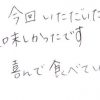 今回いただいた
味しかったです
喜んで食べてい